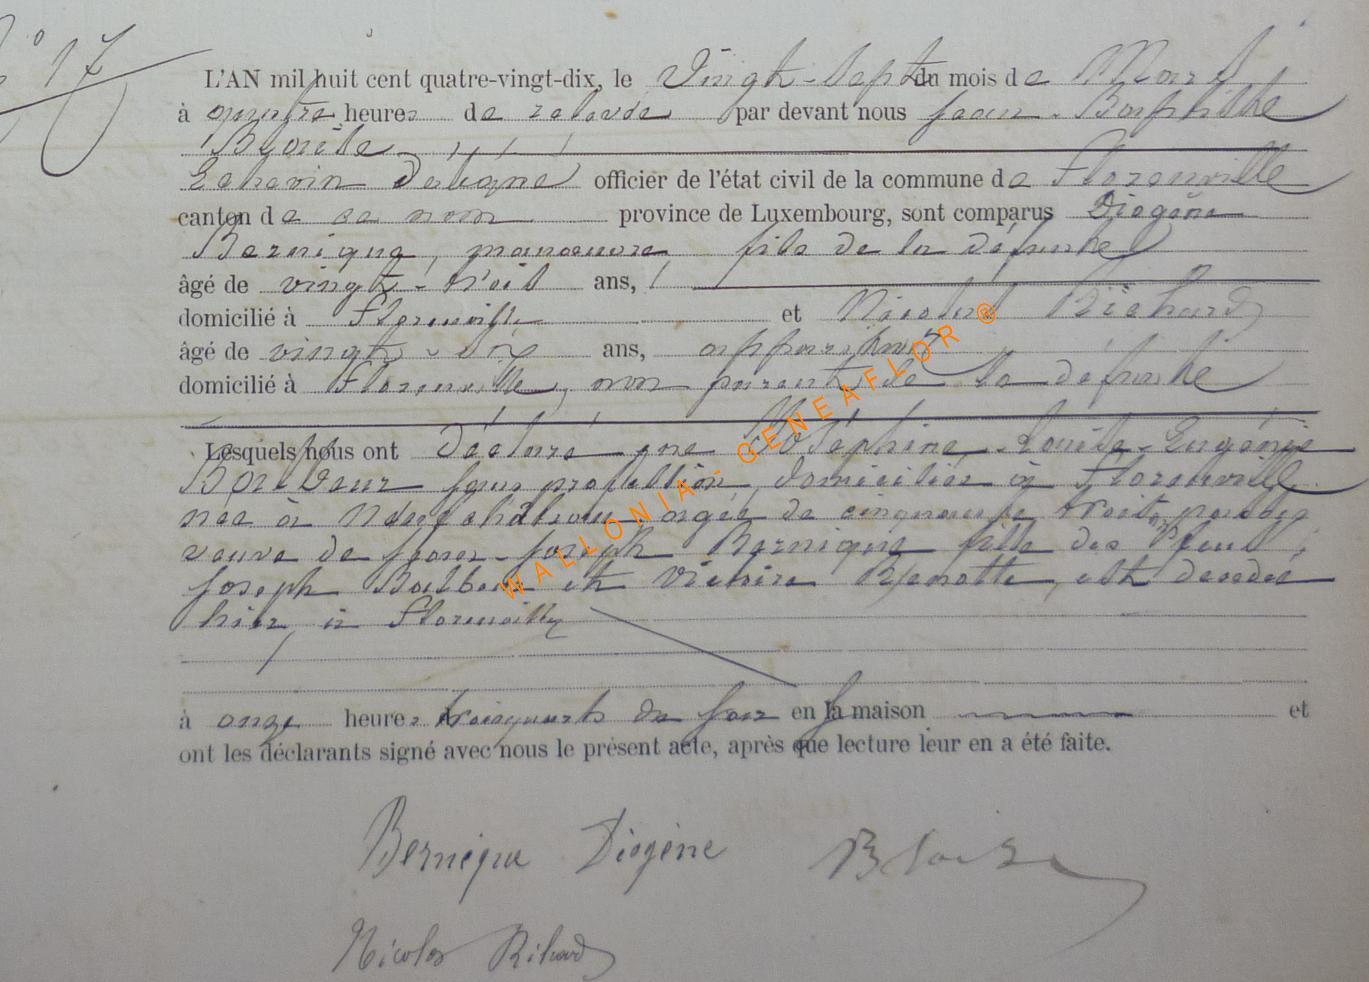 N° 17
L'AN mil huit cent quatre-vingt-dix, le Vingt-Sept du mois de Mars
à quatre heures de relevée par devant nous Jean-Baptiste
Blaise
Echevin délégué officier de l'état civil de la commune de Florenville
canton de ce nom province de Luxembourg, sont comparus Diogène
Bernique, manoeuvre fils de la défunte
âgé de vingt-trois ans,
domicilié à Florenville et Nicolas Richard
âgé de vingt-six ans,
domicilié à Florenville, non parent de la défunte
Lesquels nous ont déclaré que Joséphine-Louise-Eugénie
sans profession, domiciliée à Florenville
née à Neufchâteau âgée de cinquante trois
veuve de Jean-Joseph Bernique fille des feus
Joseph et est décédée
hier, à Florenville
à onze heures trois quarts du soir en sa maison et
ont les déclarants signé avec nous le présent acte, après que lecture leur en a été faite.
Bernique Diogène Blaise
Nicolas Richard
WALLONIA - GENEAFLOR ®